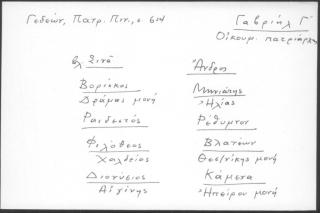 Γεδεών, Πατρ. Πιν., σ 614
Γαβριήλ Γ'
Οἰκουμ. πατριάρχης
βλ. Σινᾶ
Βορίσκος
Δράμας μονή
Ραιδεστός
Φιλόθεος
Χαλδείας
Διονύσιος
Αἰγίνης
Ἄνδρος
Μηνιάτης
Ἠλίας
Ρέθυμνον
Βλατέων
Θεσ/νίκης μονή
Κάμενα
Ἠπείρου μονή